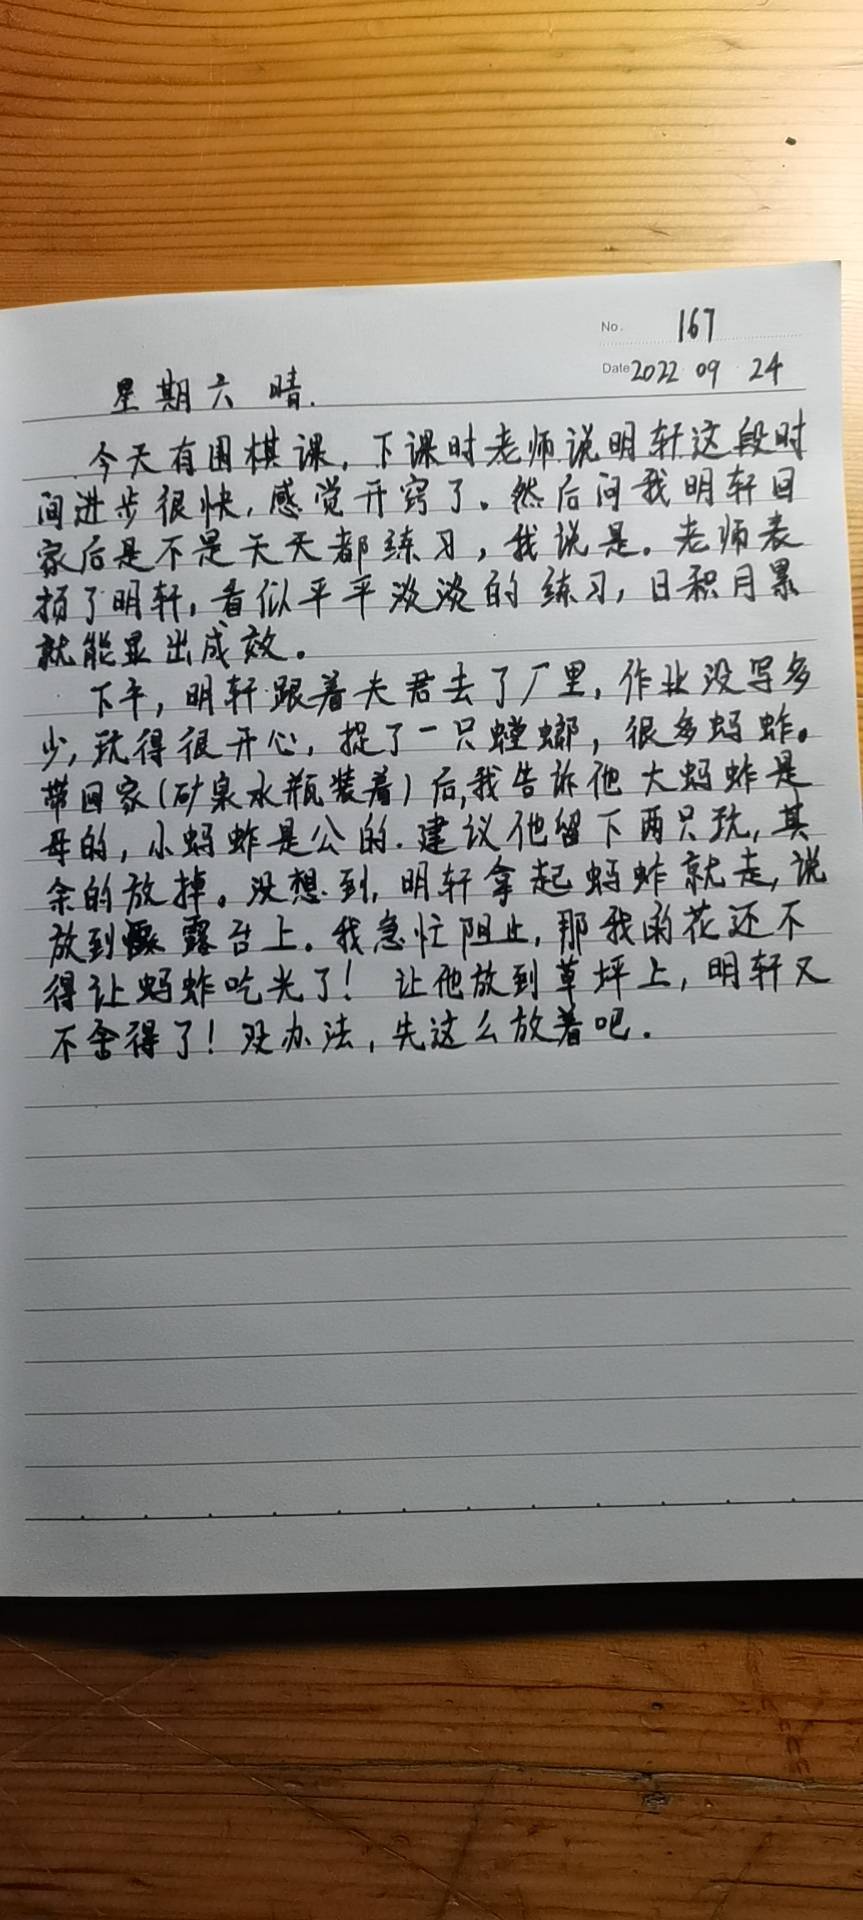 No. 167
Date 2022 09 24
星期六 晴.
今天有围棋课,下课时老师说明轩这段时
间进步很快,感觉开窍了。然后问我明轩回
家后是不是天天都练习,我说是。老师表
扬了明轩,看似平平淡淡的练习,日积月累
就能显出成效。
下午,明轩跟着夫君去了厂里,作业没写多
少,玩得很开心,捉了一只螳螂,很多蚂蚱。
带回家(矿泉水瓶装着)后,我告诉他大蚂蚱是
母的,小蚂蚱是公的.建议他留下两只玩,其
余的放掉。没想到,明轩拿起蚂蚱就走,说
放到露台上。我急忙阻止,那我的花还不
得让蚂蚱吃光了!让他放到草坪上,明轩又
不舍得了!没办法,先这么放着吧.